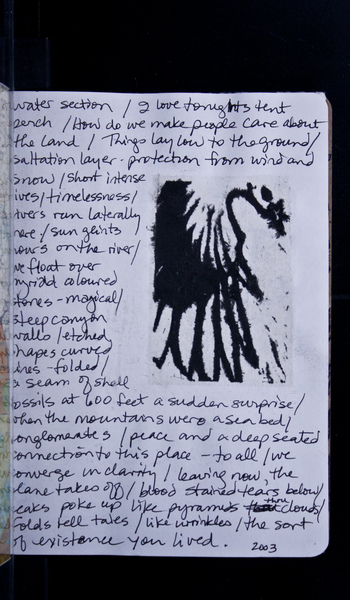 water section / I love tonights tent
perch / How do we make people care about
the land / Things lay low to the ground /
saltation layer - protection from wind and
snow / short intense
ives / timelessness /
ivers run laterally
here / sun glints
ours on the river /
we float over
myriad coloured
tones - magical /
steep canyon
walls / etched
hapes curved
ines - folded /
a seam of shell
ossils at 600 feet a sudden surprise /
when the mountains were a sea bed /
onglomerates / peace and a deep seated
onnection to this place - to all / we
onverge in clarity / leaving now, the
plane takes off / blood stained tears below /
eaks poke up like pyramids thru clouds /
folds tell tales / like wrinkles / the sort
of existence you lived. 2003